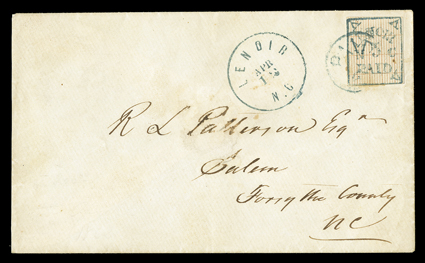 LENOIR
APR
N.C
PAID
R L Patterson Esqr
Salem
Forsythe County
NC